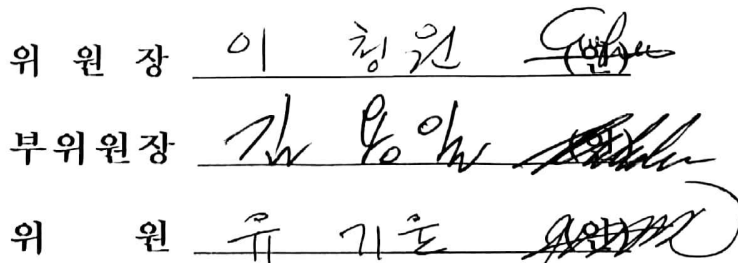 위 원 장 이 청원 (인)
부위원장 김용일 (인)
위 원 유 기운 (인)